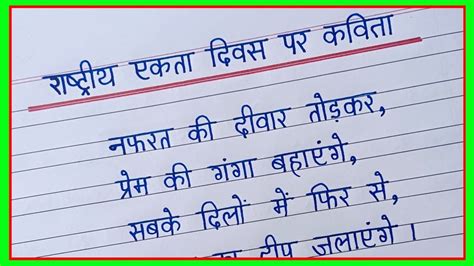 राष्ट्रीय एकता दिवस पर कविता
नफरत की दीवार तोड़कर,
प्रेम की गंगा बहाएंगे,
सबके दिलों में फिर से,
दीप जलाएंगे ।